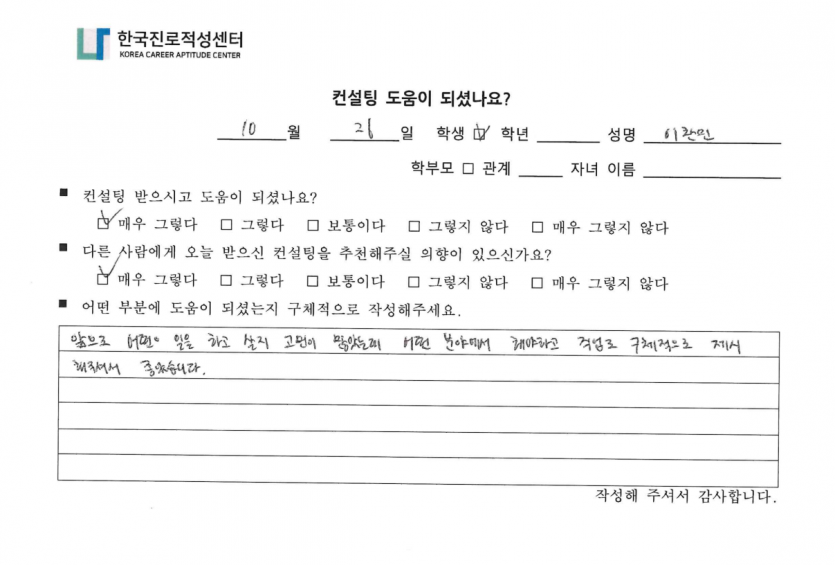 한국진로적성센터
KOREA CAREER APTITUDE CENTER
컨설팅 도움이 되셨나요?
10 월 26 일 학생 ☑ 학년 성명 이찬민
학부모 □ 관계 자녀 이름
■ 컨설팅 받으시고 도움이 되셨나요?
☑ 매우 그렇다 □ 그렇다 □ 보통이다 □ 그렇지 않다 □ 매우 그렇지 않다
■ 다른 사람에게 오늘 받으신 컨설팅을 추천해주실 의향이 있으신가요?
☑ 매우 그렇다 □ 그렇다 □ 보통이다 □ 그렇지 않다 □ 매우 그렇지 않다
■ 어떤 부분에 도움이 되셨는지 구체적으로 작성해주세요.
앞으로 어떤 일을 하고 살지 고민이 많았는데 어떤 분야에서 해야하고 직업도 구체적으로 제시
해주셔서 좋았습니다.
작성해 주셔서 감사합니다.